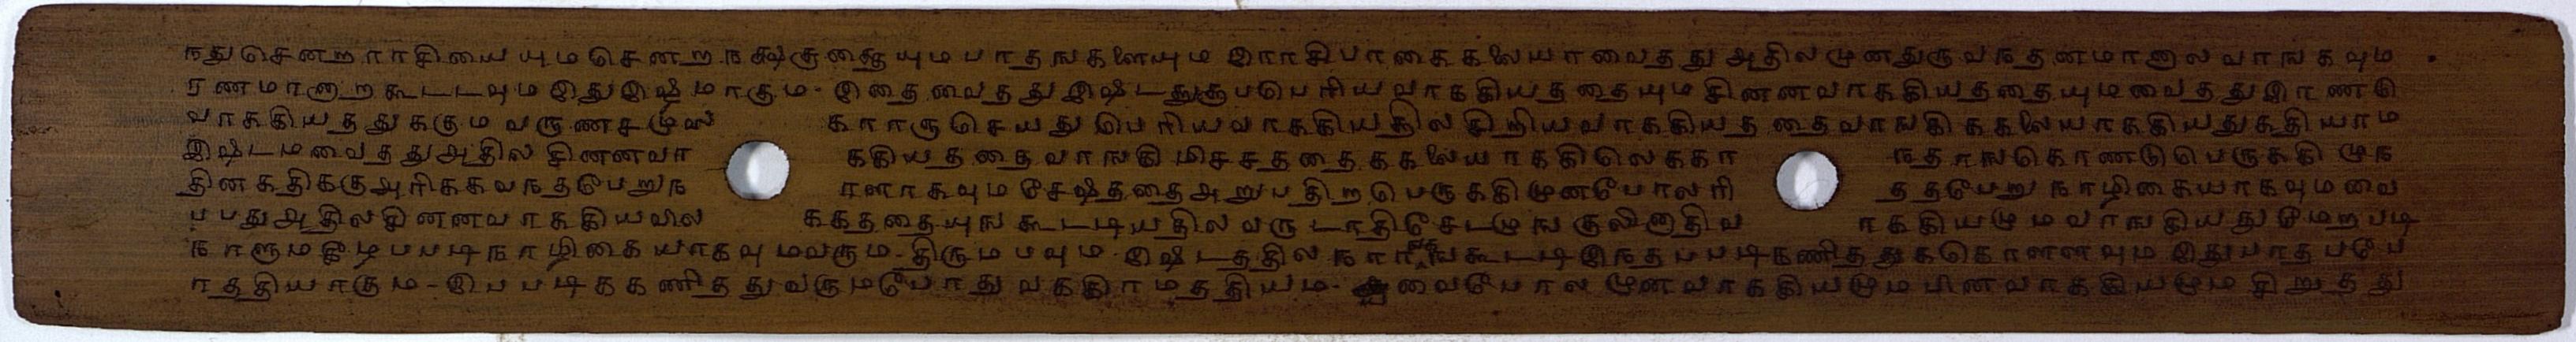 நதுசெனறராசியையுமசெனறநக்ஷத்தையுமபாதஙகளையும இராசிபாகைகலையாவைதது அதிலமுனதுருவநதனமானாலவாஙகவும
ரணமானாறகூடடவும இதுஇஷ்டமாகும இதைவைதது இஷ்டததுககுபபெரியவாககியததையுமசினனவாககியததையுமவைதது இரணடு
வாககியததுககுமவருண காரருசெயது பெரியவாககியதிலசிறியவாககியததைவாஙகிககலையாககியதுகதியாம
இஷ்டமவைதது அதில சினனவா ககியததைவாஙகி மிசசததைககலையாககிலெககா நதாஙகொணடுபெருககி முந
தினகதிககு அரிககவநதபேறுந ரளாகவும சேஷ்ததை அறுபதிறபெருககிமுனபோலரி ததபேறு நாழிகையாகவுமவை
பபது அதிலசினனவாககியவில ககததையுஙகூடடியதிலவருடாதிசேடமுங ாககியமுமவாஙகியது மேறபடி
நாளுமகீழபபடிநாழிகையாகவுமவரும திருமபவும இஷ்டததில கூடடி இநதபபடிகணிததுககொளளவும இதுபாதபபே
ாததியாகும இபபடிககணிததுவருமபோது வககிரமததியம வைபோல முனவாககியமுமபினவாககியமும சிறுதது